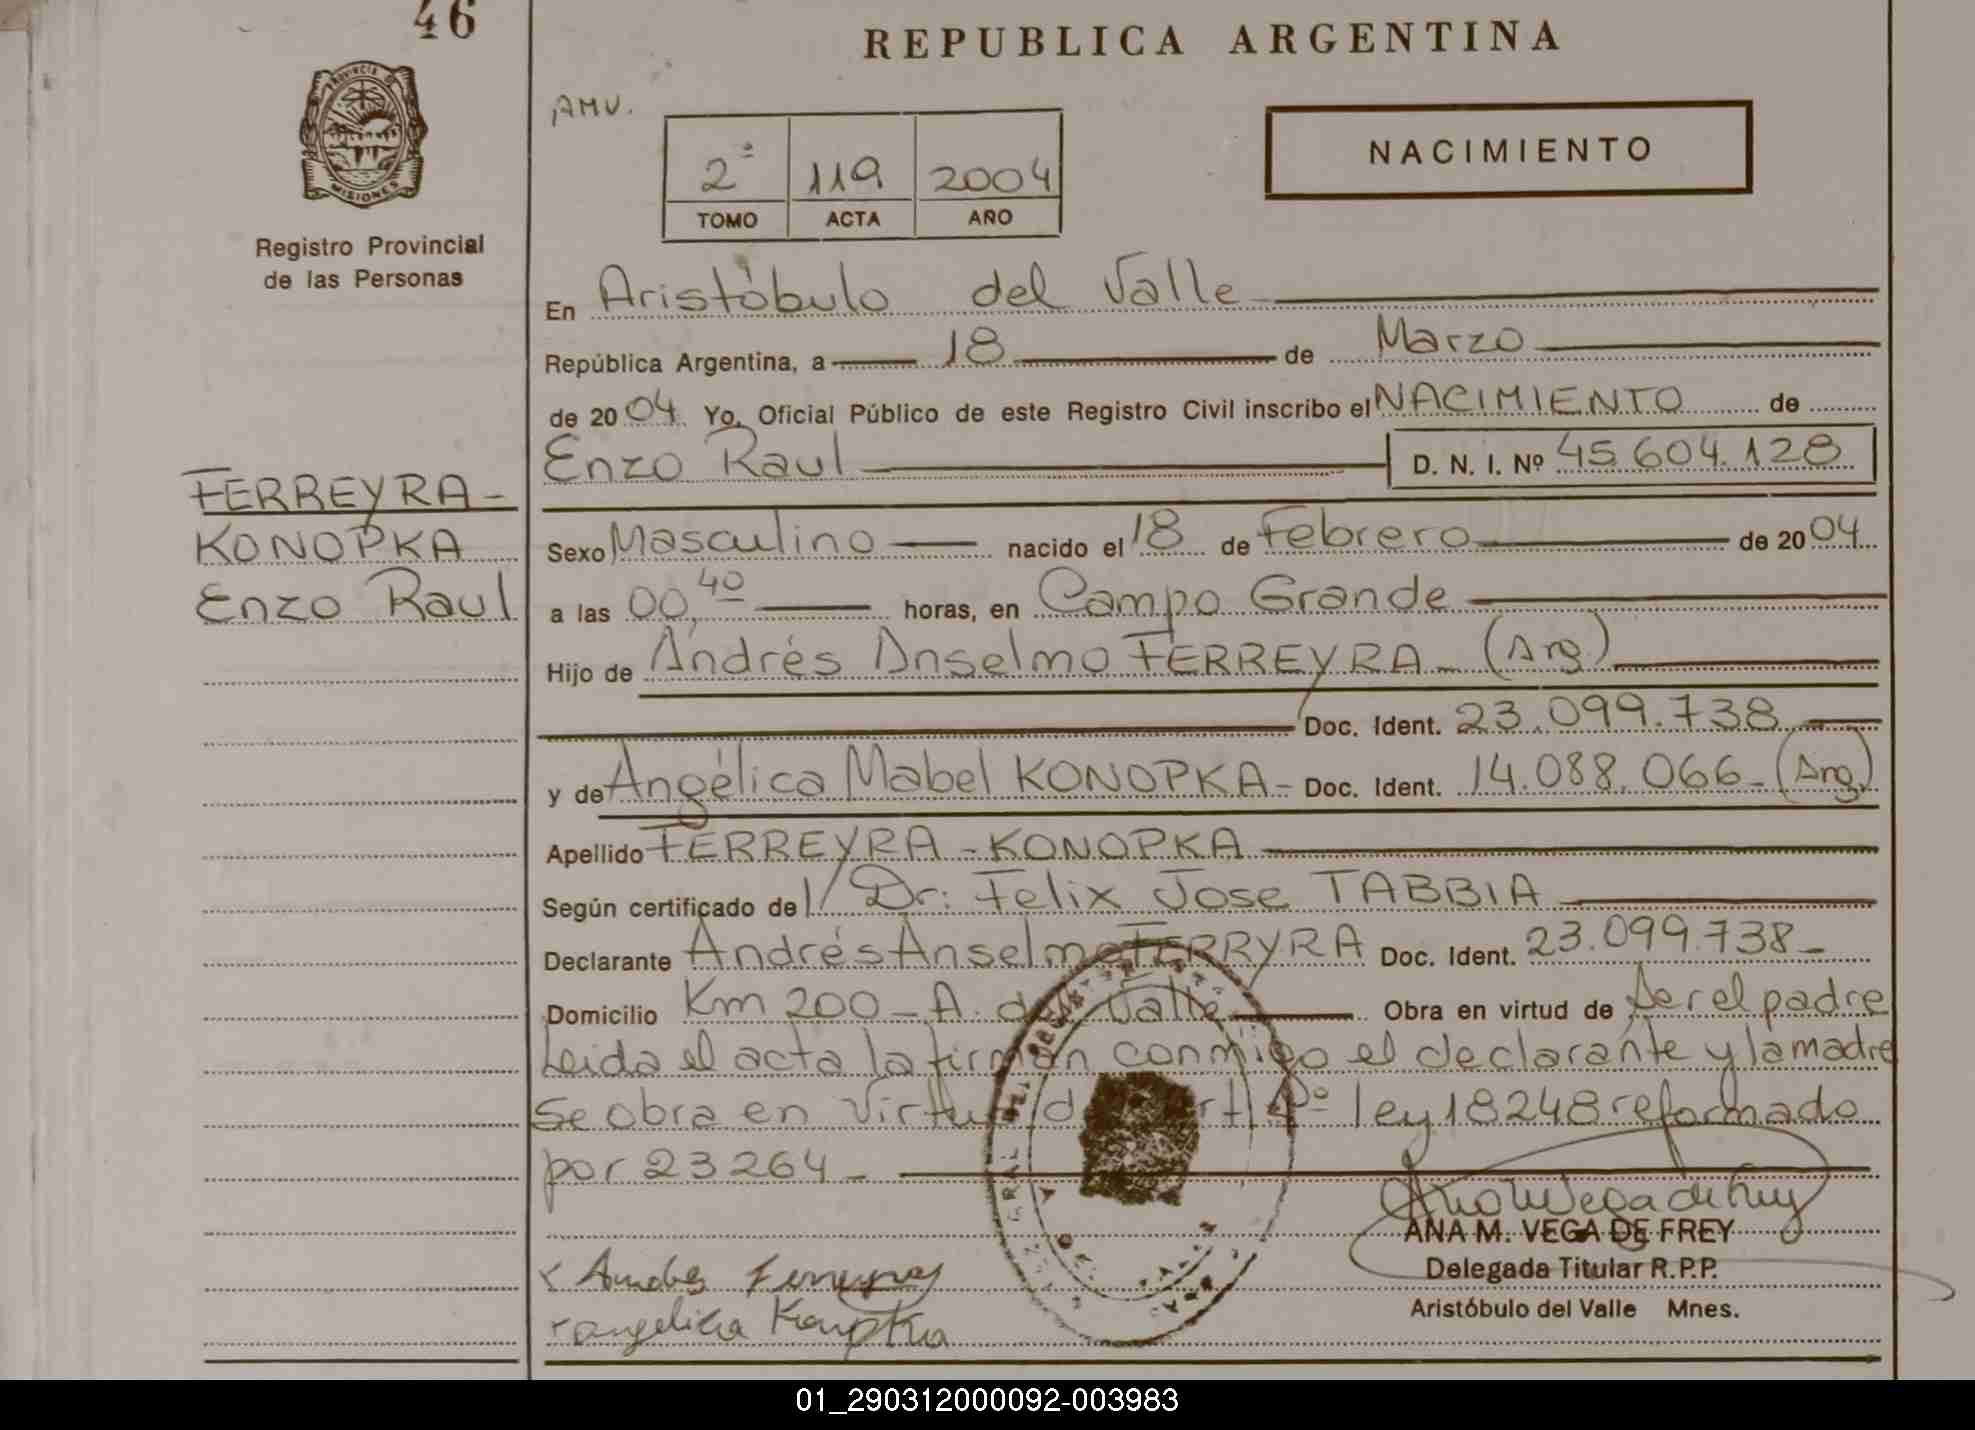 46
REPUBLICA ARGENTINA
PROVINCIA DE
MISIONES
Registro Provincial
de las Personas
AMV.
2ª 119 2004
TOMO ACTA AÑO
NACIMIENTO
En Aristóbulo del Valle
República Argentina, a 18 de Marzo
de 2004. Yo, Oficial Público de este Registro Civil inscribo el NACIMIENTO de
Enzo Raul D. N. I. Nº 45.604.128
FERREYRA-
KONOPKA
Enzo Raul
Sexo Masculino nacido el 18 de Febrero de 2004
a las 00,40 horas, en Campo Grande
Hijo de Andrés Anselmo FERREYRA - (Arg.)
Doc. Ident. 23.099.738
y de Angélica Mabel KONOPKA - Doc. Ident. 14.088.066 - (Arg.)
Apellido FERREYRA - KONOPKA
Según certificado de l/ Dr: Felix Jose TABBIA
Declarante Andrés Anselmo FERRYRA Doc. Ident. 23.099.738 -
Domicilio Km 200 - A. del Valle Obra en virtud de ser el padre
Leida el acta la firman conmigo el declarante y la madre
se obra en virtud del art 4º ley 18248 reformado
por 23264 -
ANA M. VEGA DE FREY
Delegada Titular R.P.P.
Aristóbulo del Valle Mnes.
Andres Ferreyra
angelica Konopka
01_290312000092-003983